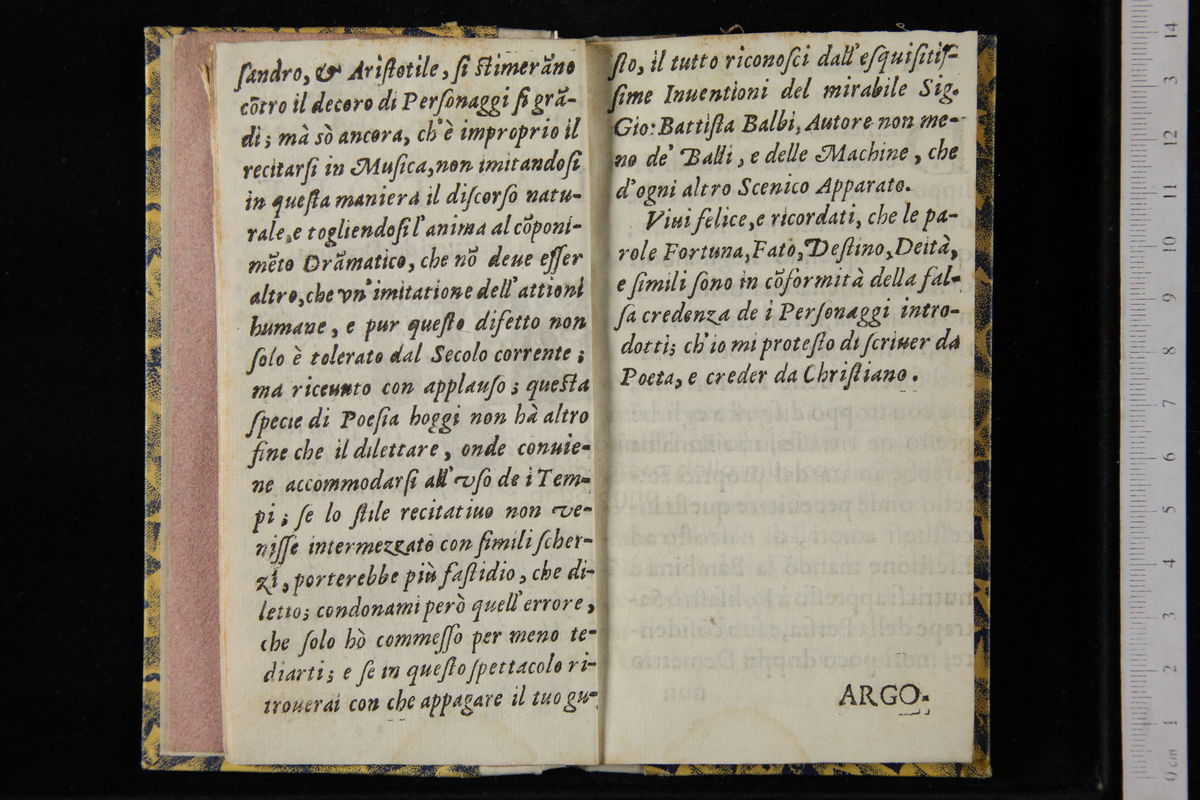 ſandro, & Ariſtotile, ſi ſtimerãno
cõtro il decoro di Perſonaggi ſi grã-
di; mà sò ancora, ch'è improprio il
recitarſi in Muſica, non imitandoſi
in queſta maniera il diſcorſo natu-
rale, e togliendoſi l'anima al cõponi-
mẽto Drãmatico, che nõ deue eſſer
altro, che vn'imitatione dell'attioni
humane, e pur queſto difetto non
ſolo è tolerato dal Secolo corrente;
ma riceuuto con applauſo; queſta
ſpecie di Poeſia hoggi non hà altro
fine che il dilettare, onde conuie-
ne accommodarſi all'vſo de i Tem-
pi; ſe lo ſtile recitatiuo non ve-
niſſe intermezzato con ſimili ſcher-
zi, porterebbe più faſtidio, che di-
letto; condonami però quell'errore,
che ſolo hò commeſſo per meno te-
diarti; e ſe in queſto ſpettacolo ri-
trouerai con che appagare il tuo gu-
ſto, il tutto riconoſci dall'eſquiſitiſ-
ſime Inuentioni del mirabile Sig.
Gio: Battiſta Balbi, Autore non me-
no de' Balli, e delle Machine, che
d'ogni altro Scenico Apparato.
Viui felice, e ricordati, che le pa-
role Fortuna, Fato, Deſtino, Deità,
e ſimili ſono in cõformità della fal-
ſa credenza de i Perſonaggi intro-
dotti; ch'io mi proteſto di ſcriuer da
Poeta, e creder da Chriſtiano.
ARGO-
14
13
12
11
10
9
8
7
6
5
4
3
2
1
0 cm